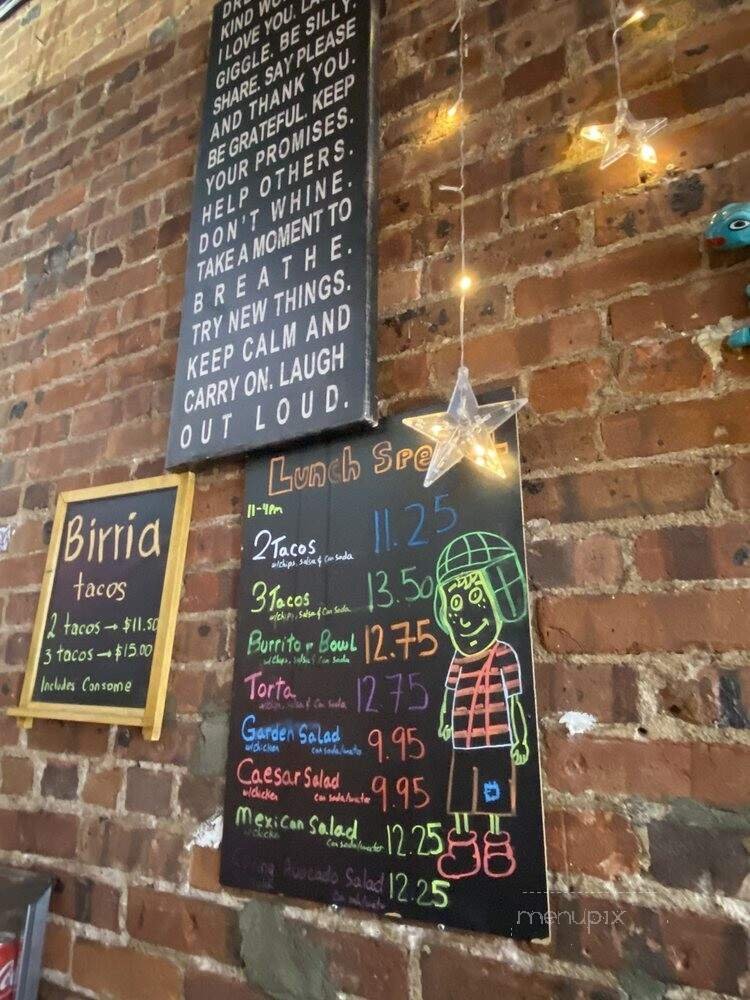 KIND WO
I LOVE YOU. LA
GIGGLE. BE SILLY.
SHARE. SAY PLEASE
AND THANK YOU.
BE GRATEFUL. KEEP
YOUR PROMISES.
HELP OTHERS.
DON'T WHINE.
TAKE A MOMENT TO
BREATHE.
TRY NEW THINGS.
KEEP CALM AND
CARRY ON. LAUGH
OUT LOUD.
Birria
tacos
2 tacos → $11.50
3 tacos → $15.00
Includes Consome
Lunch Spe
11-4pm
2 Tacos 11.25
w/chips, salsa & Can soda
3 Tacos 13.50
w/chips, salsa & Can Soda
Burrito or Bowl 12.75
w/chips, salsa & Can Soda
Torta 12.75
w/chips, salsa & Can soda
Garden Salad 9.95
w/chicken can soda/water
Caesar Salad 9.95
w/chicken can soda/water
Mexican Salad 12.25
w/chicken can soda/water
Avocado Salad 12.25
menupix